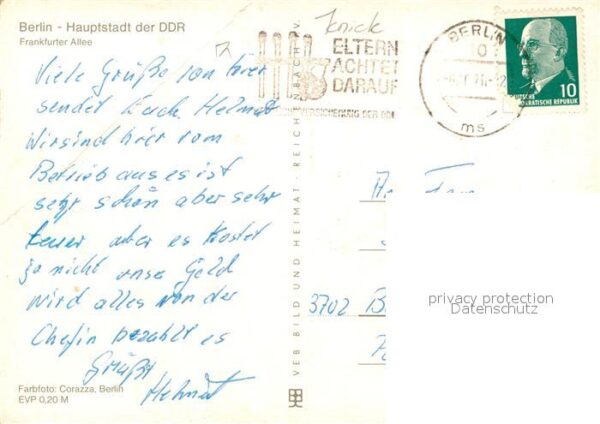 Berlin - Hauptstadt der DDR
Frankfurter Allee
Viele Grüße von hier
sendet Euch Helmut
Wir sind hier vom
Betrieb aus es ist
sehr schön aber sehr
teuer aber es kostet
ja nicht unser Geld
wird alles von der
Chefin bezahlt es
Grüßt
Helmut
Farbfoto: Corazza, Berlin
EVP 0,20 M
VEB BILD UND HEIMAT · REICHENBACH i. V.
ELTERN
ACHTET
DARAUF
VERSICHERUNG DER DDR
BERLIN
10
ms
10
DEUTSCHE
DEMOKRATISCHE REPUBLIK
3702
privacy protection
Datenschutz